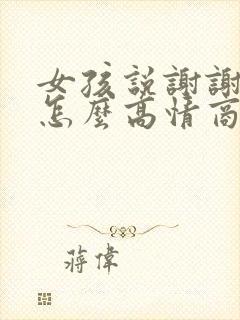 女孩説謝謝
怎麼高情商
蔣偉